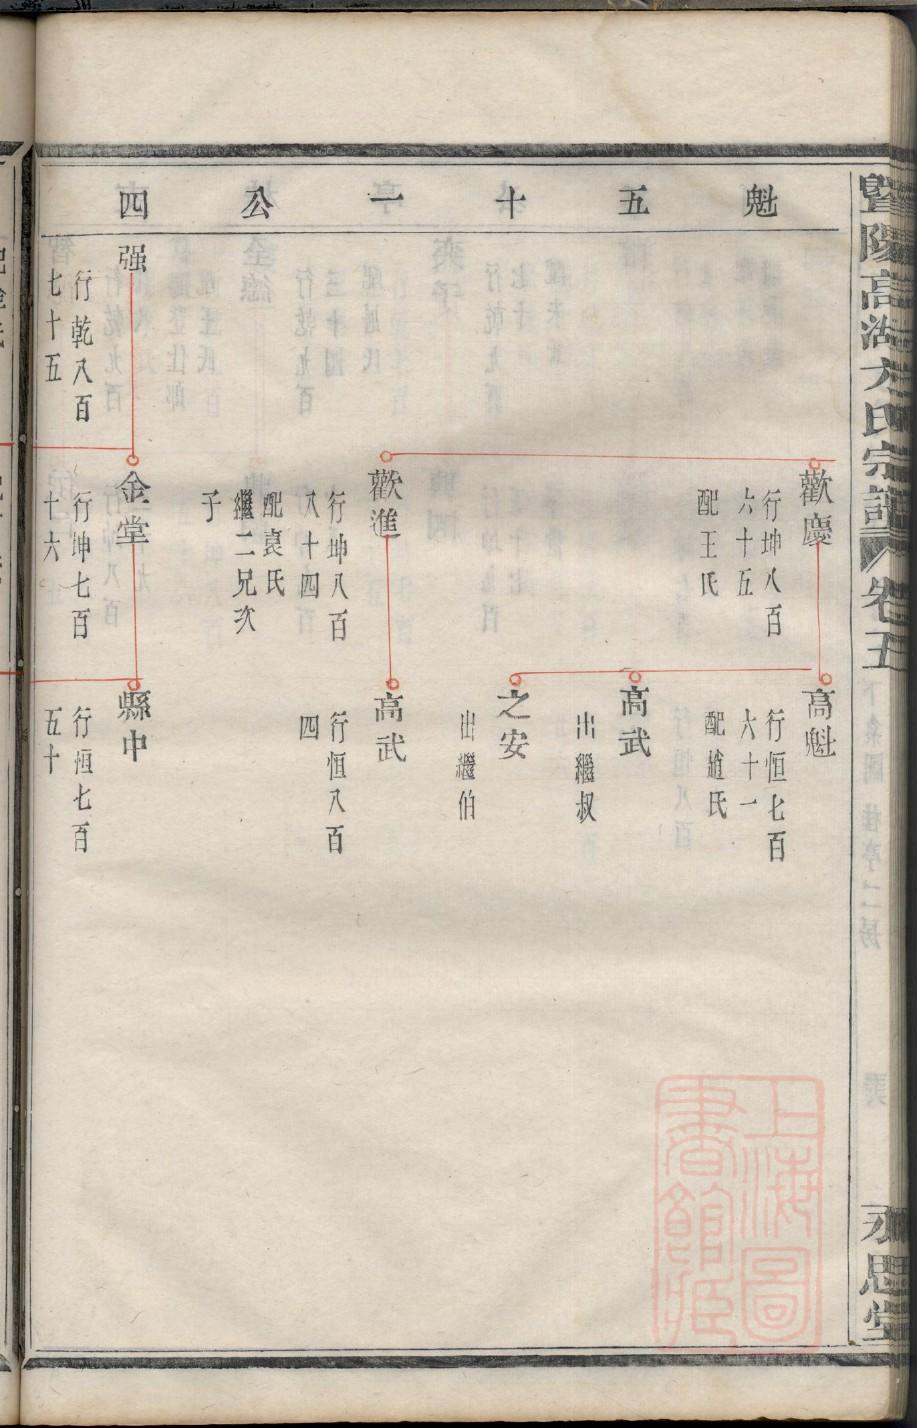 暨陽高湖方氏宗譜
卷五
永思堂
魁五十一公四
歡慶
行坤八百
六十五
配王氏
高魁
行恒七百
六十一
配趙氏
高武
出繼叔
之安
出繼伯
歡進
行坤八百
八十四
配袁氏
繼二兄次
子
高武
行恒八百
四
强
行乾八百
七十五
金堂
行坤七百
十六
縣中
行恒七百
五十
上海圖
書館藏